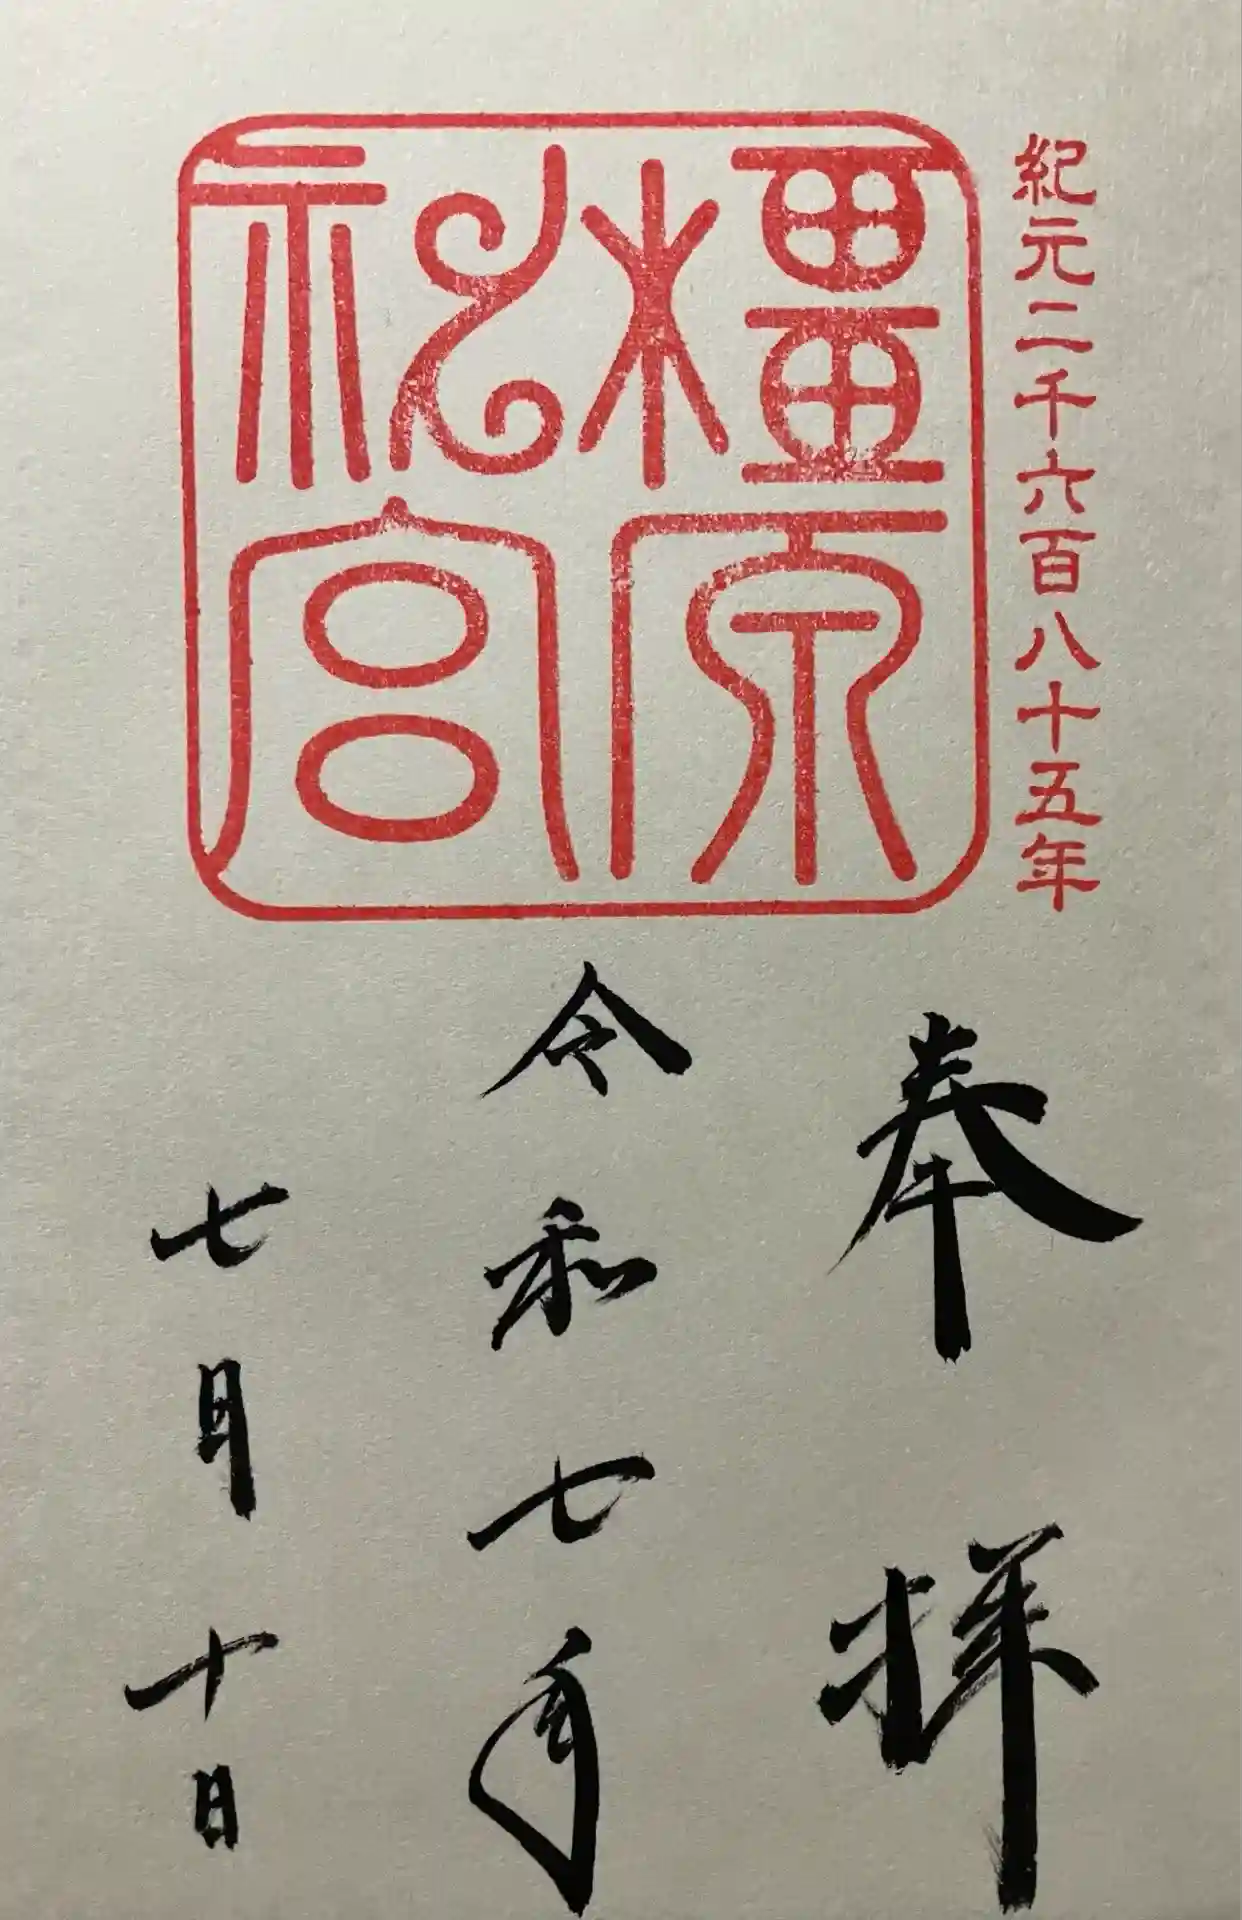 紀元二千六百八十五年
橿原
神宮
奉拝
令和七年
七月十日